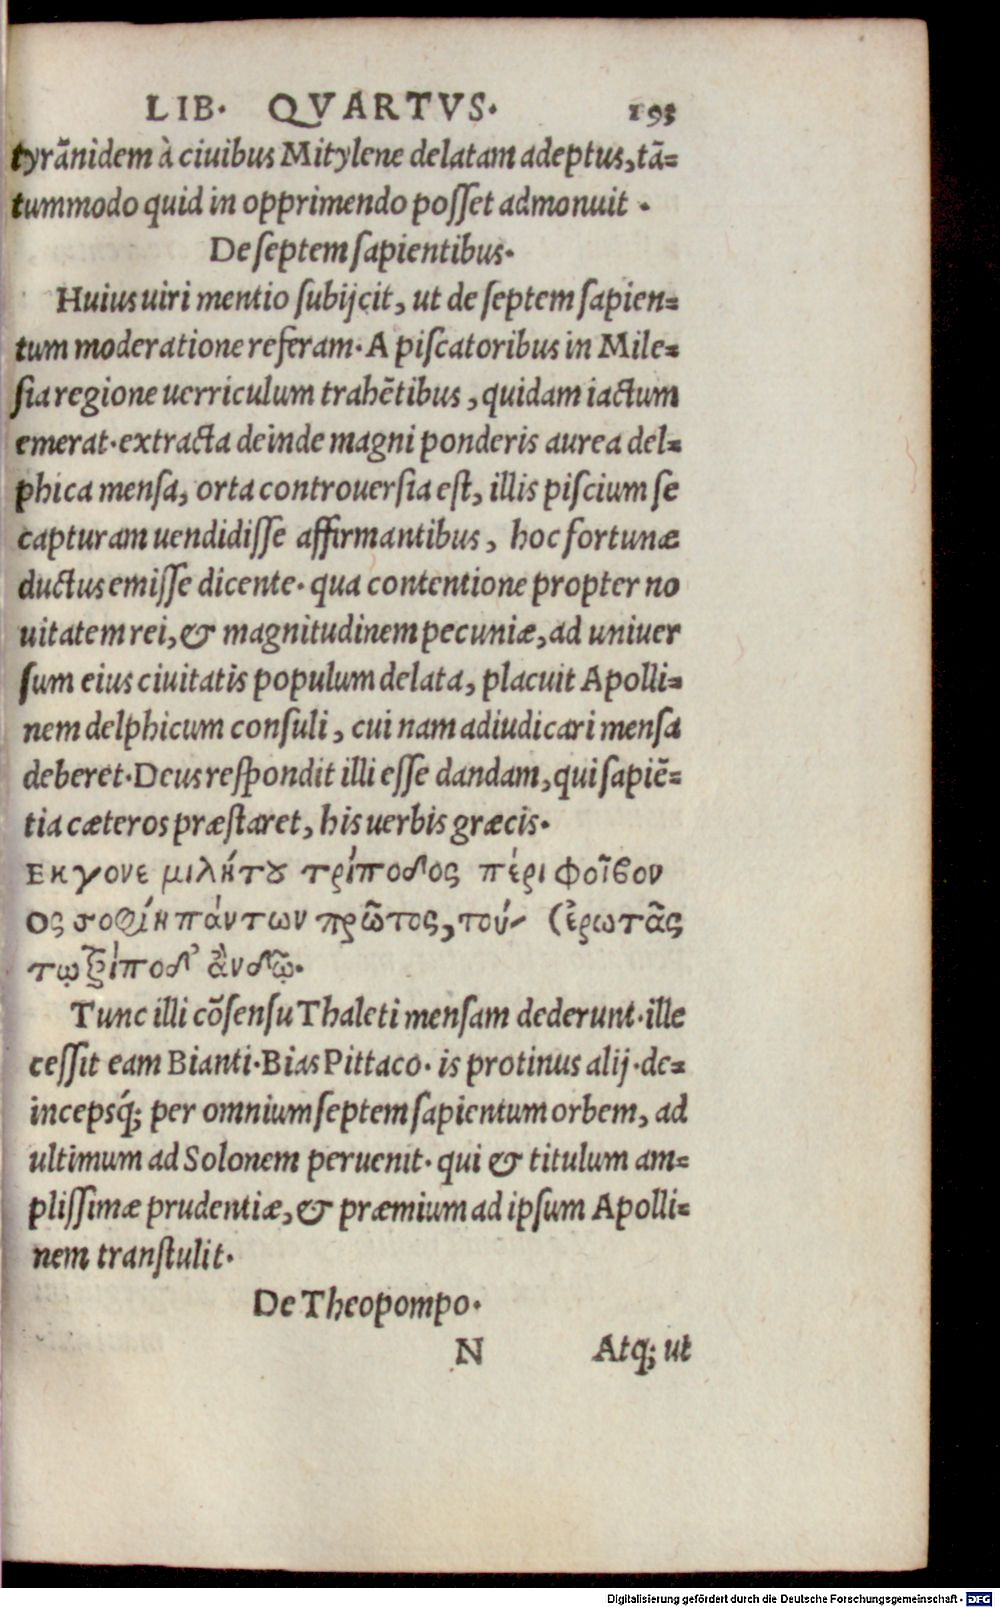 LIB. QVARTVS. 193
tyrãnidem à ciuibus Mitylene delatam adeptus, tã=
tummodo quid in opprimendo posset admonuit.
De septem sapientibus.
Huius uiri mentio subijcit, ut de septem sapien=
tum moderatione referam. A piscatoribus in Mile=
sia regione uerriculum trahẽtibus, quidam iactum
emerat. extracta deinde magni ponderis aurea del=
phica mensa, orta controuersia est, illis piscium se
capturam uendidisse affirmantibus, hoc fortunæ
ductus emisse dicente. qua contentione propter no
uitatem rei, & magnitudinem pecuniæ, ad uniuer
sum eius ciuitatis populum delata, placuit Apolli=
nem delphicum consuli, cui nam adiudicari mensa
deberet. Deus respondit illi esse dandam, qui sapiẽ=
tia cæteros præstaret, his uerbis græcis.
Εκγονε μιλήτȣ τρίποδος πέρι φοῖβον
Ος σοφίη πάντων πρῶτος, τού- (ἐρωτᾶς
τῳ τρίποδ' ἀνδῷ.
Tunc illi cõsensu Thaleti mensam dederunt. ille
cessit eam Bianti. Bias Pittaco. is protinus alij. de=
incepsq́; per omnium septem sapientum orbem, ad
ultimum ad Solonem peruenit. qui & titulum am=
plissimæ prudentiæ, & præmium ad ipsum Apolli=
nem transtulit.
De Theopompo.
N Atq; ut
Digitalisierung gefördert durch die Deutsche Forschungsgemeinschaft - DFG